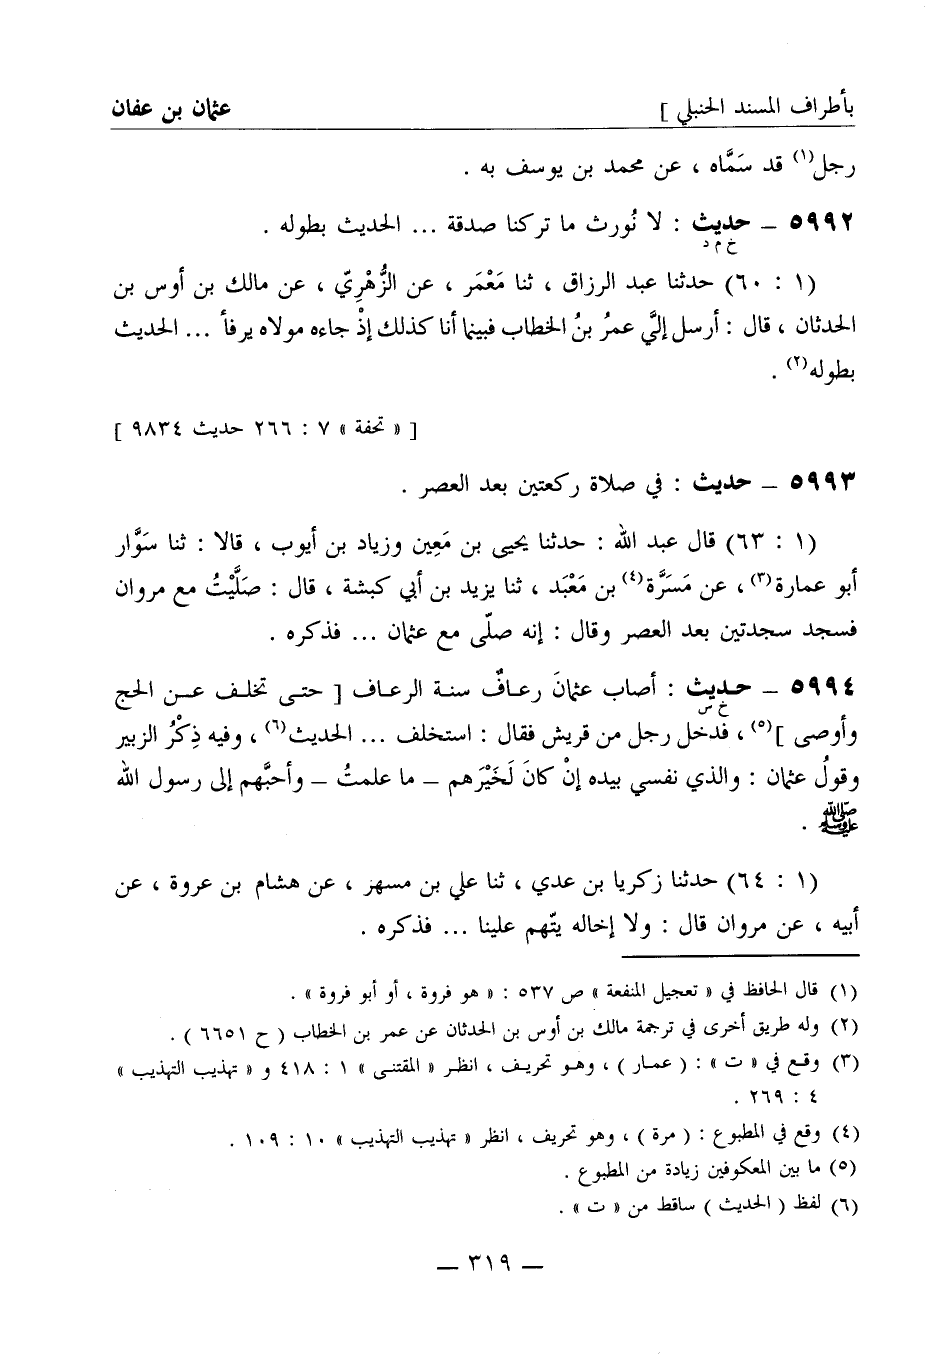 بأطراف المسند الحنبلي ] عثمان بن عفان
رجل(١) قد سَمَّاه ، عن محمد بن يوسف به .
٥٩٩٢ ـ حديث : لا نُورث ما تركنا صدقة ... الحديث بطوله .
خ م د
(١ : ٦٠) حدثنا عبد الرزاق ، ثنا مَعْمَر ، عن الزُّهْرِيّ ، عن مالك بن أوس بن
الحدثان ، قال : أرسل إليَّ عمرُ بنُ الخطاب فبينما أنا كذلك إذْ جاءه مولاه يرفأ ... الحديث
بطوله(٢) .
[ « تحفة » ٧ : ٢٦٦ حديث ٩٨٣٤ ]
٥٩٩٣ ـ حديث : في صلاة ركعتين بعد العصر .
(١ : ٦٣) قال عبد الله : حدثنا يحيى بن مَعِين وزياد بن أيوب ، قالا : ثنا سَوَّار
أبو عمارة(٣) ، عن مَسَرَّة(٤) بن مَعْبَد ، ثنا يزيد بن أبي كبشة ، قال : صَلَّيْتُ مع مروان
فسجد سجدتين بعد العصر وقال : إنه صلّى مع عثمان ... فذكره .
٥٩٩٤ ـ حديث : أصاب عثمانَ رعافٌ سنة الرعاف [ حتى تخلف عن الحج
خ س
وأوصى ](٥) ، فدخل رجل من قريش فقال : استخلف ... الحديث(٦) ، وفيه ذِكْرُ الزبير
وقولُ عثمان : والذي نفسي بيده إنْ كانَ لَخَيْرَهم ـ ما علمتُ ـ وأحبَّهم إلى رسول الله
ﷺ .
(١ : ٦٤) حدثنا زكريا بن عدي ، ثنا علي بن مسهر ، عن هشام بن عروة ، عن
أبيه ، عن مروان قال : ولا إخاله يتّهم علينا ... فذكره .
(١) قال الحافظ في « تعجيل المنفعة » ص ٥٣٧ : « هو فروة ، أو أبو فروة » .
(٢) وله طريق أخرى في ترجمة مالك بن أوس بن الحدثان عن عمر بن الخطاب ( ح ٦٦٥١ ) .
(٣) وقع في « ت » : ( عمار ) ، وهو تحريف ، انظر « المقتنى » ١ : ٤١٨ و « تهذيب التهذيب »
٤ : ٢٦٩ .
(٤) وقع في المطبوع : ( مرة ) ، وهو تحريف ، انظر « تهذيب التهذيب » ١٠ : ١٠٩ .
(٥) ما بين المعكوفين زيادة من المطبوع .
(٦) لفظ ( الحديث ) ساقط من « ت » .
ـ ٣١٩ ـ